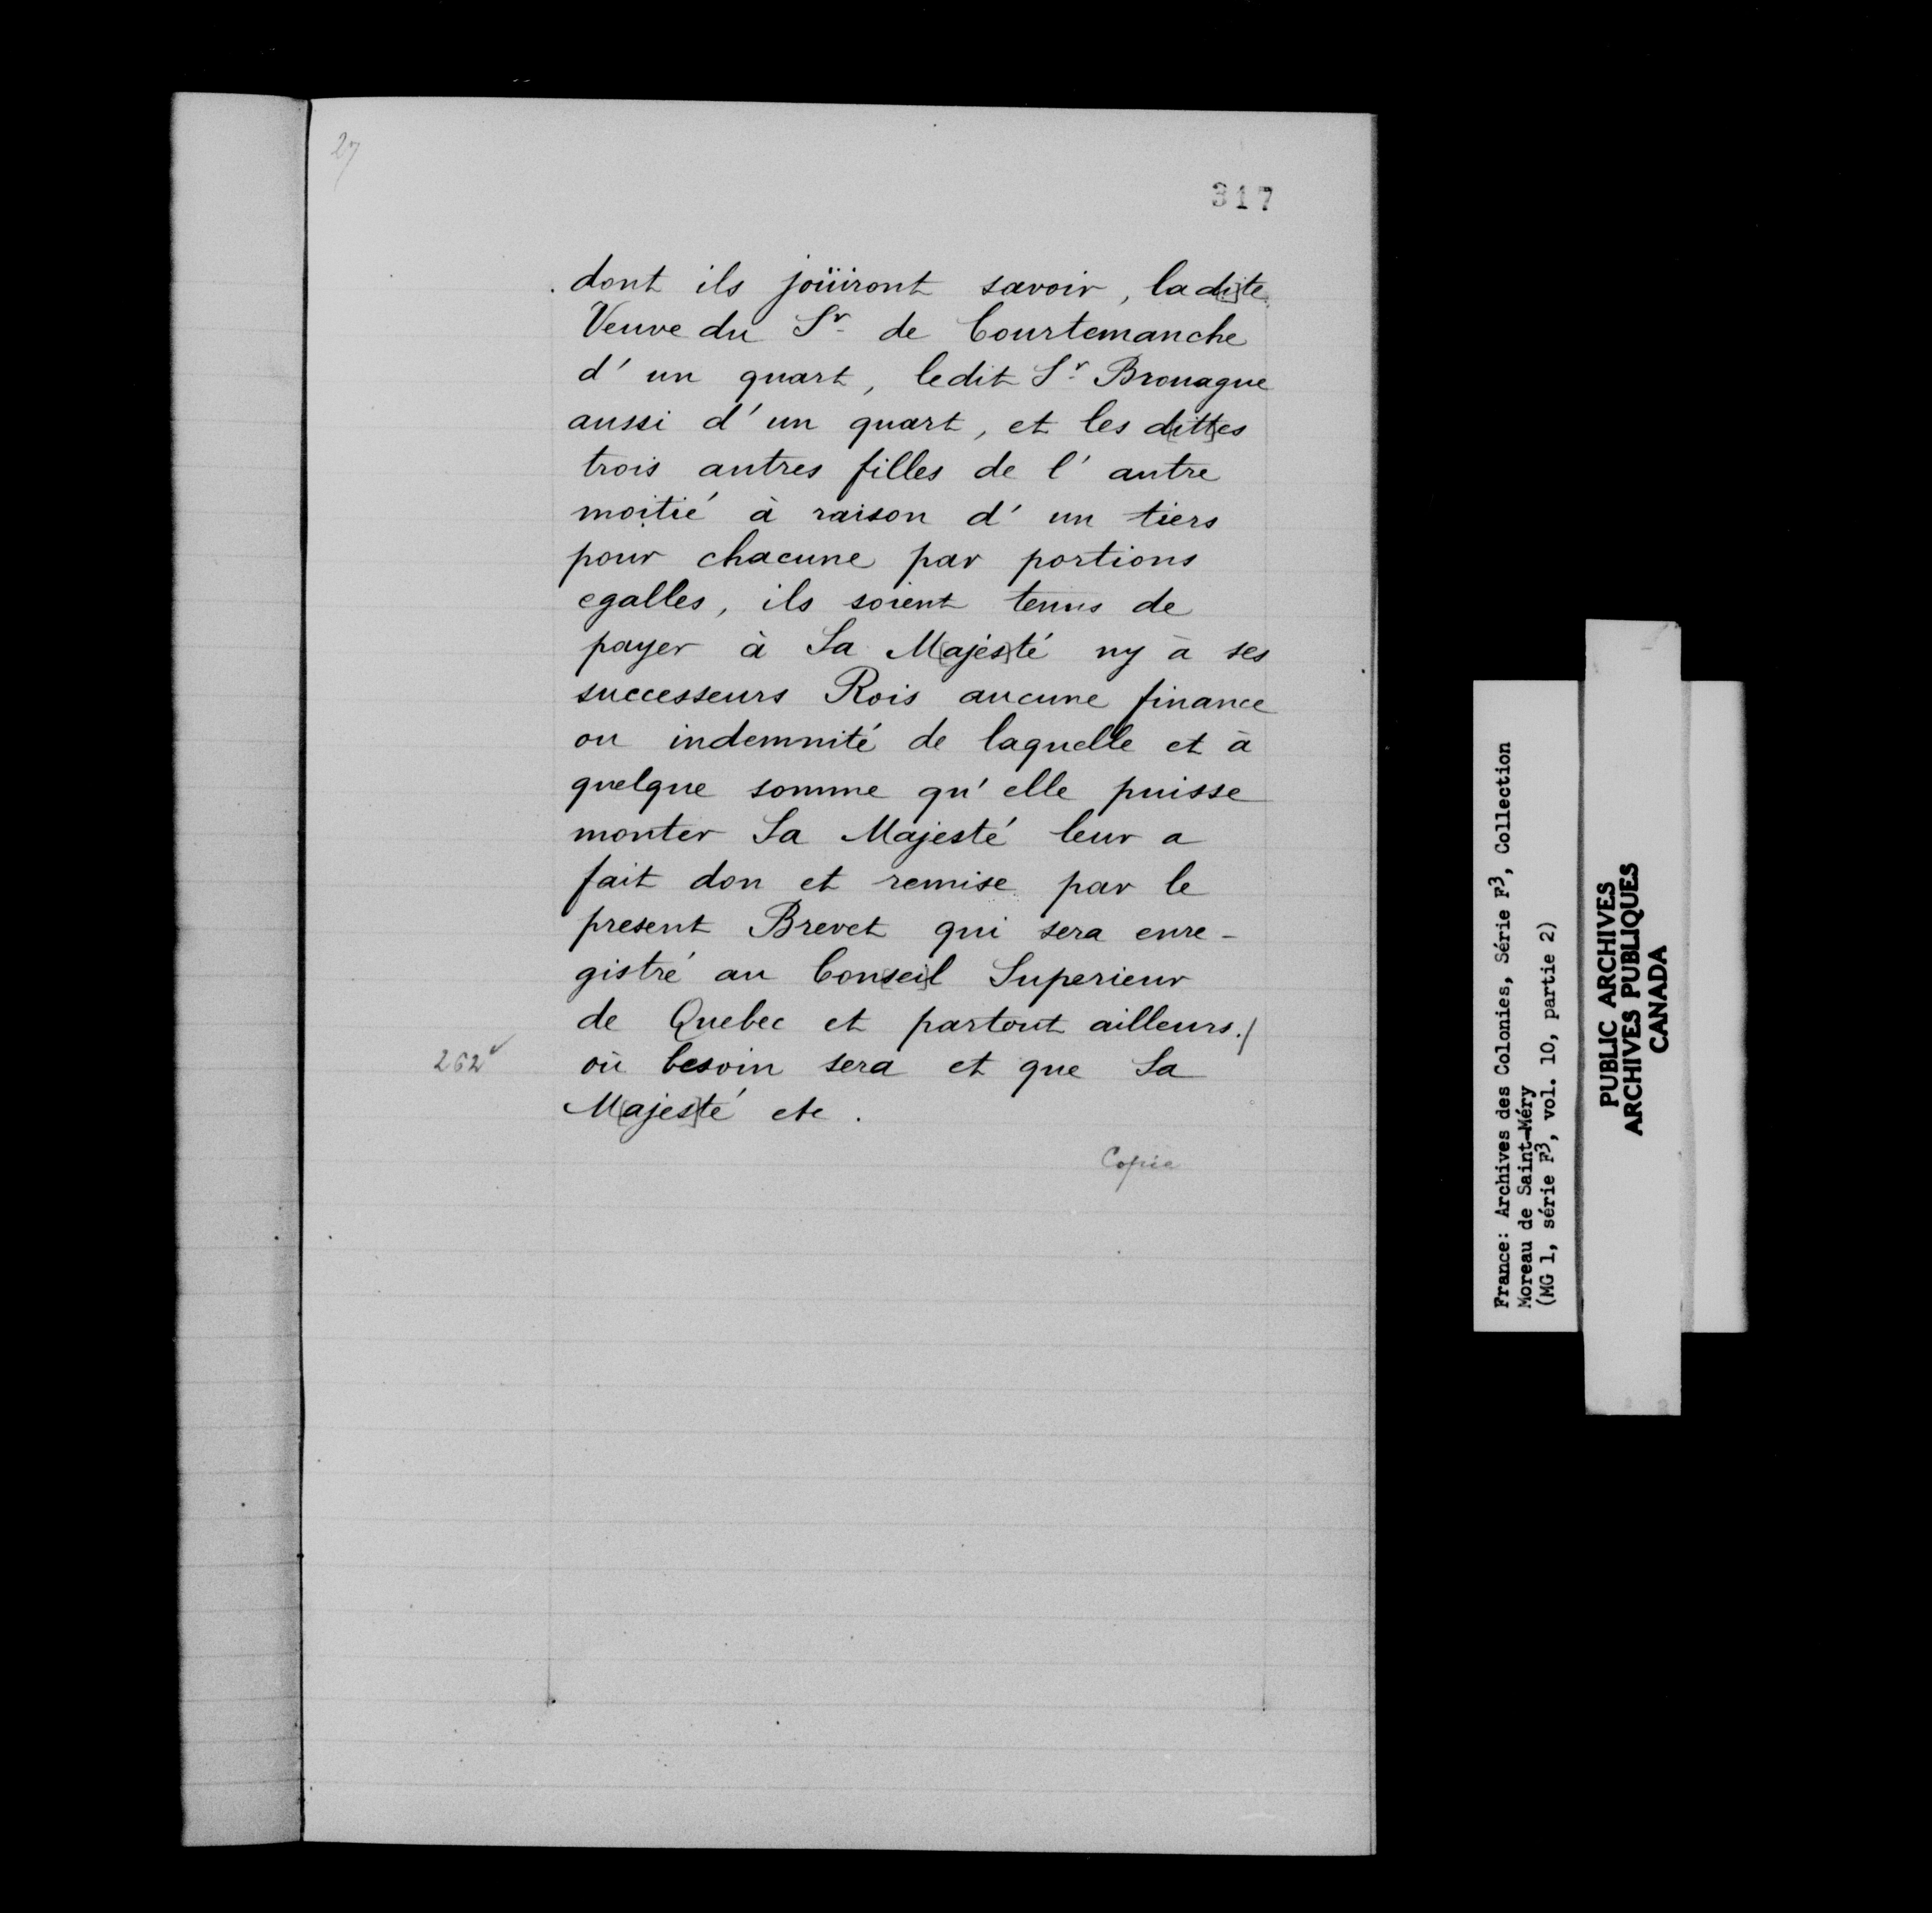 27
317
dont ils joüiront savoir, la d[it]e
Veuve du Sr de Courtemanche
d'un quart, ledit Sr Brouague
aussi d'un quart, et les d[itt]es
trois autres filles de l'autre
moitié à raison d'un tiers
pour chacune par portions
egalles, ils soient tenus de
payer à Sa M[ajes]té ny à ses
successeurs Rois aucune finance
ou indemnité de laquelle et à
quelque somme qu'elle puisse
monter Sa Majesté leur a
fait don et remise par le
present Brevet qui sera enre-
gistré au Con[sei]l Superieur
de Quebec et partout ailleurs./
262v
où besoin sera et que Sa
M[ajes]té etc.
Copie
France: Archives des Colonies, Série F3, Collection
Moreau de Saint-Méry
(MG 1, série F3, vol. 10, partie 2)
PUBLIC ARCHIVES
ARCHIVES PUBLIQUES
CANADA